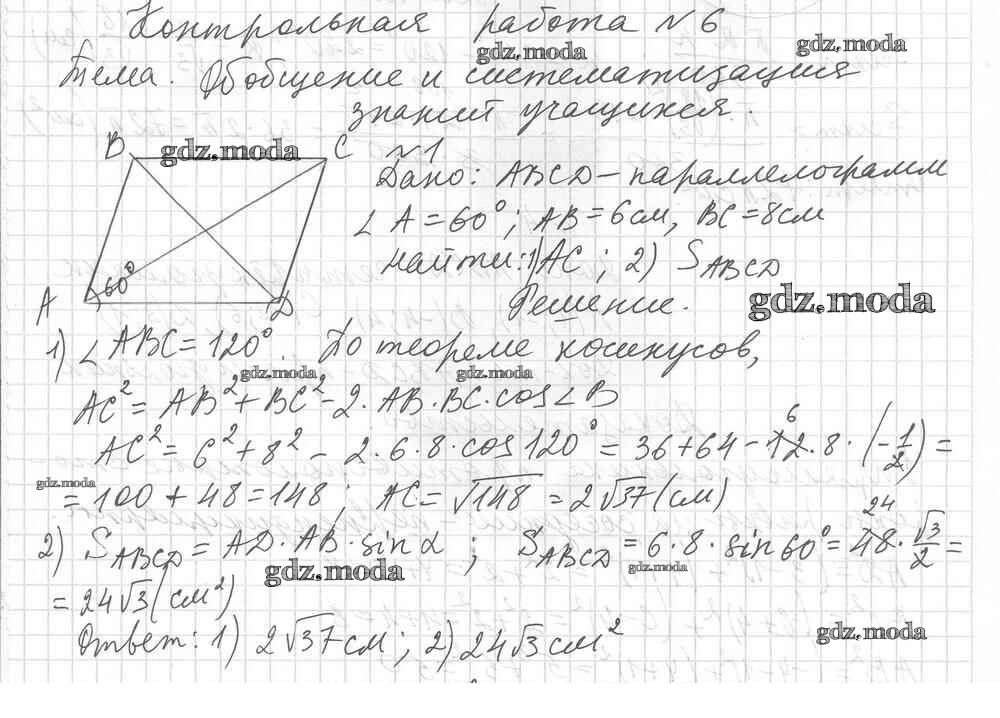 Контрольная работа №6
gdz.moda gdz.moda
Тема. Обобщение и систематизация
знаний учащихся.
B gdz.moda C №1
Дано: ABCD – параллелограмм
∠A = 60°; AB = 6 см, BC = 8 см
Найти: 1) AC; 2) S_ABCD
A 60° D
Решение. gdz.moda
1) ∠ABC = 120°. По теореме косинусов,
gdz.moda gdz.moda
AC² = AB² + BC² - 2·AB·BC·cos∠B
AC² = 6² + 8² - 2·6·8·cos120° = 36 + 64 - 12·8·(-1/2) =
6
gdz.moda
= 100 + 48 = 148; AC = √148 = 2√37 (см)
2) S_ABCD = AD·AB·sin α; S_ABCD = 6·8·sin60° = 48·√3/2 =
24
gdz.moda gdz.moda
= 24√3 (см²)
Ответ: 1) 2√37 см; 2) 24√3 см²
gdz.moda